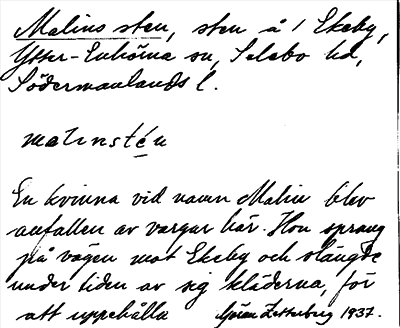 Malins sten, sten å 1 Ekeby,
Ytter-Enhörna sn, Selebo hd,
Södermanlands l.
malɩnsté̱n
En kvinna vid namn Malin blev
anfallen av vargar här. Hon sprang
på vägen mot Ekeby och slängde
under tiden av sig kläderna, för
att uppehålla Göran Zetterberg 1937.